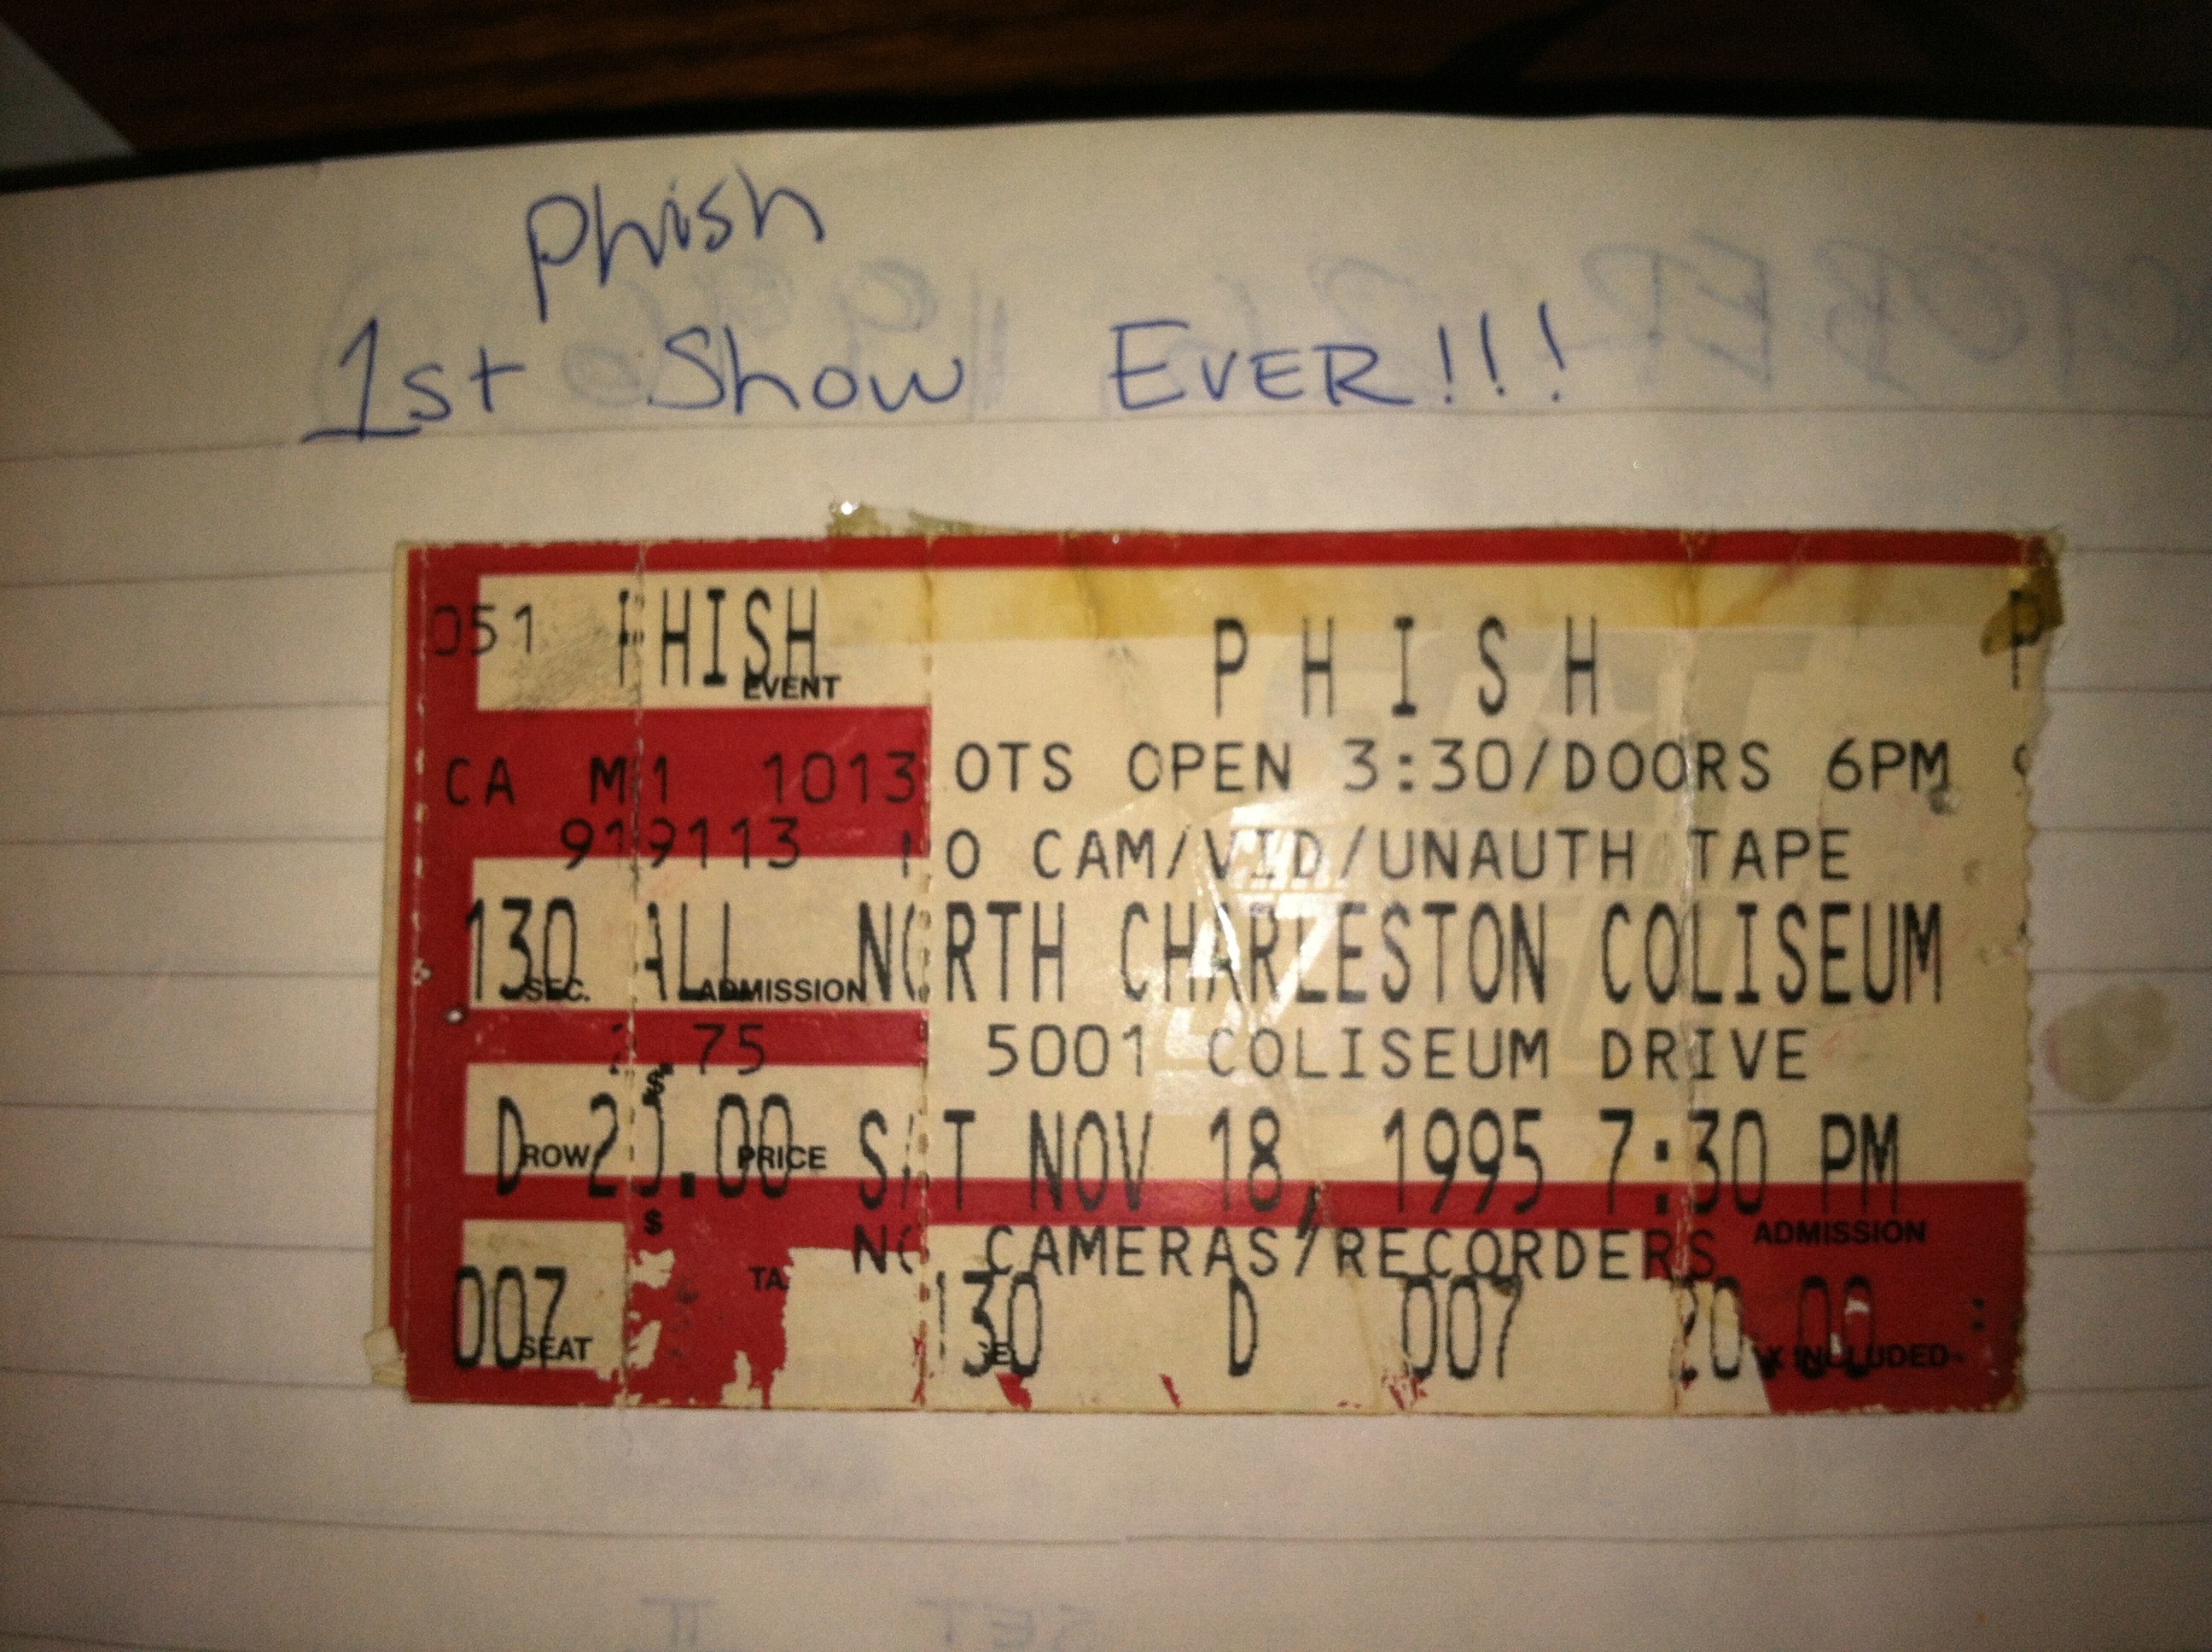 Phish
1st Show EVER!!!
051 PHISH P H I S H
EVENT
CA M1 1013 OTS OPEN 3:30/DOORS 6PM
919113 NO CAM/VID/UNAUTH TAPE
130 ALL NORTH CHARLESTON COLISEUM
SEC. ADMISSION
2.75 5001 COLISEUM DRIVE
$
D 20.00 SAT NOV 18, 1995 7:30 PM
ROW PRICE
$ ADMISSION
NO CAMERAS/RECORDERS
007 130 D 007 20.00
SEAT INCLUDED
SET II